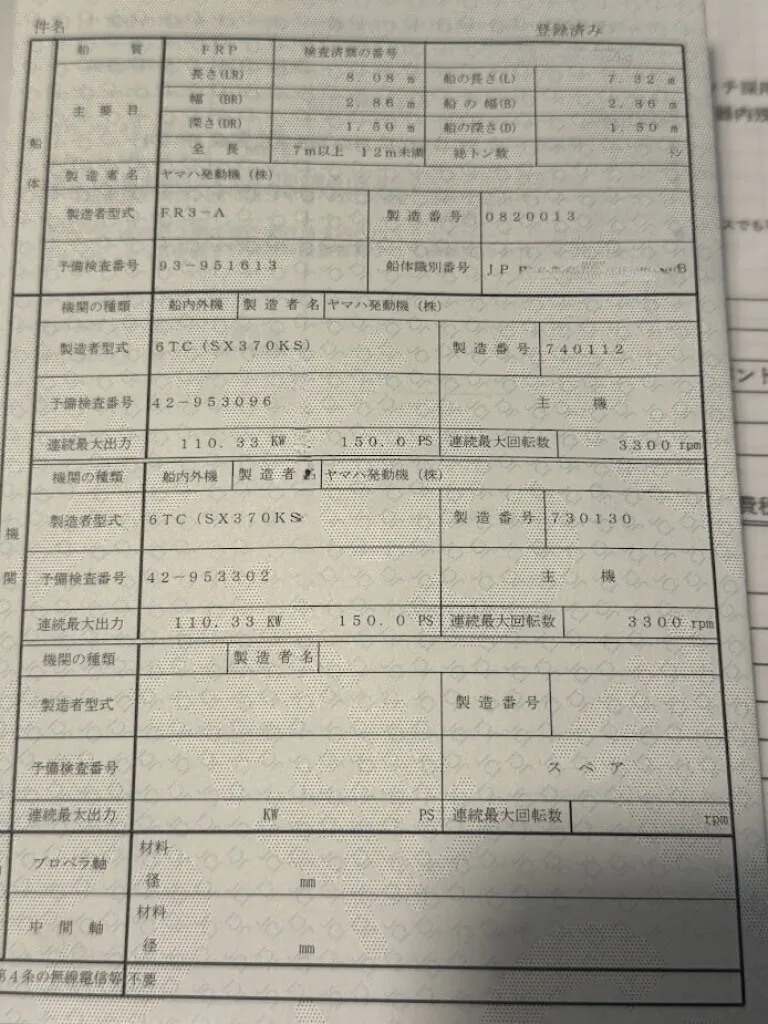 件名 登録済み
船質 ＦＲＰ 検査済票の番号
船体 主要目 長さ(LR) 8.08 m 船の長さ(L) 7.32 m
幅 (BR) 2.86 m 船の幅(B) 2.86 m
深さ(DR) 1.50 m 船の深さ(D) 1.50 m
全長 7m以上 12m未満 総トン数 トン
製造者名 ヤマハ発動機（株）
製造者型式 FR3-A 製造番号 0820013
予備検査番号 93-951613 船体識別番号 JP B
機関 機関の種類 船内外機 製造者名 ヤマハ発動機（株）
製造者型式 6TC(SX370KS) 製造番号 740112
予備検査番号 42-953096 主機
連続最大出力 110.33 KW 150.0 PS 連続最大回転数 3300 rpm
機関の種類 船内外機 製造者名 ヤマハ発動機（株）
製造者型式 6TC(SX370KS 製造番号 730130
予備検査番号 42-953302 主機
連続最大出力 110.33 KW 150.0 PS 連続最大回転数 3300 rpm
機関の種類 製造者名
製造者型式 製造番号
予備検査番号 スペア
連続最大出力 KW PS 連続最大回転数 rpm
プロペラ軸 材料
径 mm
中間軸 材料
径 mm
第4条の無線電信等 不要